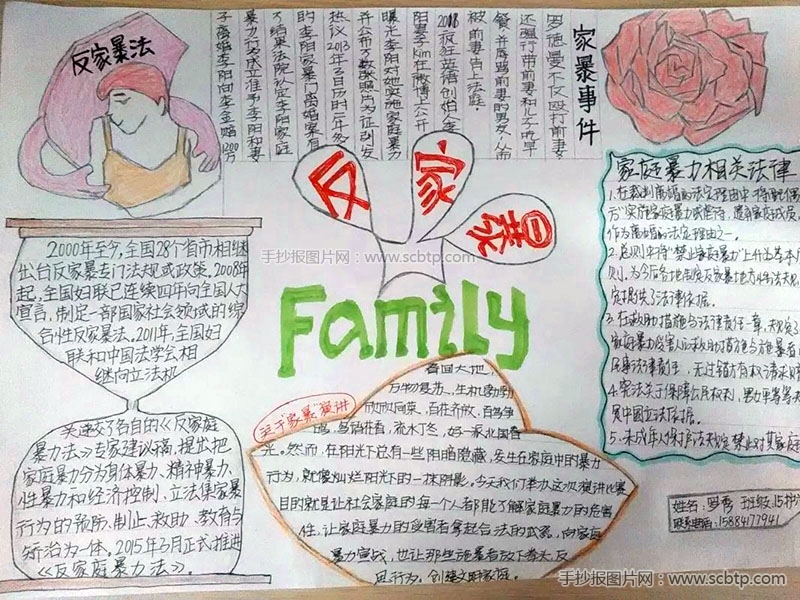 反家暴法
家暴事件
罗德曼不仅殴打前妻
还强行带前妻和儿子吃早
餐,并辱骂前妻的男友,从而
被前妻告上法庭.
疯狂英语创始人李
阳妻子kim在微博上公开
曝光李阳对她实施家庭暴力
并公布多张照片为证引发
热议2013年2月历时一年多
的李阳家暴门离婚案有
了结果法院认定李阳家庭
暴力行为成立准予李阳和妻
子离婚李阳向李金赔1200万
反家暴
手抄报图片网:www.scbtp.com
Family
2000年至今,全国28个省市相继
出台反家暴专门法规或政策。2008年
起,全国妇联已连续四年向全国人大
宣言,制定一部国家社会领域的综
合性反家暴法。2011年,全国妇
联和中国法学会相
继向立法机
关递交了各自的《反家庭
暴力法》专家建议稿,提出把
家庭暴力分为身体暴力、精神暴力、
性暴力和经济控制,立法集家暴
行为的预防、制止、救助、教育与
矫治为一体。2015年3月正式推进
《反家庭暴力法》。
关于“家暴”演讲
春回大地,
万物复苏、生机勃勃
欣欣向荣、百花齐放、百鸟争
鸣、鸟语花香、流水丁冬,好一派北国春
光。然而,在阳光下总有一些阴暗隐藏,发生在家庭中的暴力
行为,就像灿烂阳光下的一抹阴影。今天我们举办这次演讲比赛
目的就是让社会家庭的每一个人都能了解家庭暴力的危害
性,让家庭暴力的受害者拿起合法的武器,向家庭
暴力宣战,也让那些施暴者放下拳头,反
思行为。创建文明家庭。
家庭暴力相关法律
1.在裁判离婚的法定理由中将配偶
方“实施家庭暴力或虐待、遗弃家庭成员
作为离婚的法定理由之一。
2.总则中将“禁止家庭暴力”上升为基本
则,为今后各地制定反家暴地方性法规
提供了法律依据。
3.在救助措施与法律责任一章,规定了
家庭暴力受害人的救助措施与施暴者
民事法律责任,无过错方有权请求
4.宪法关于保障公民权利,男女平等
冀中国立法依据。
5.未成年人保护法规定禁止对其家庭
姓名:罗秀 班级:15护
联系电话:15884177941
手抄报图片网:www.scbtp.com